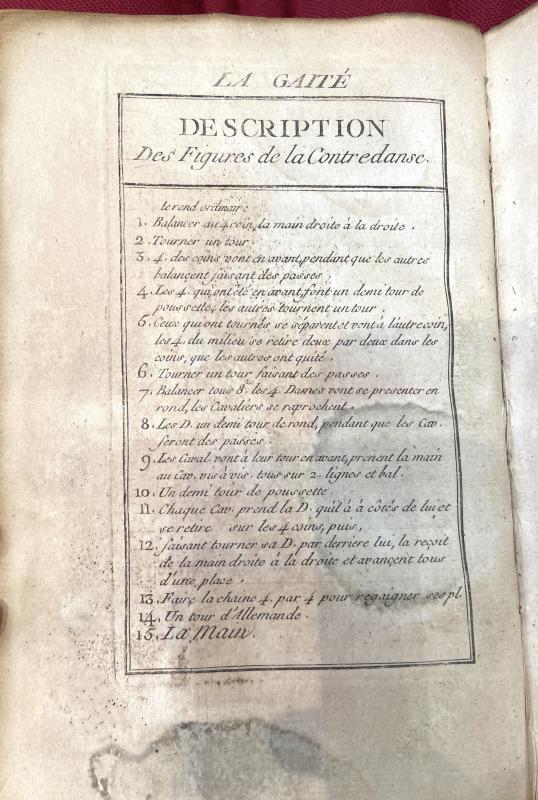 LA GAITÉ
DESCRIPTION
Des Figures de la Contredanse.
le rond ordinaire
1. Balancer au 4 coin, la main droite à la droite.
2. Tourner un tour.
3. 4. des coins vont en avant, pendant que les autres
balançent faisant des passes.
4. Les 4. qui ont été en avant, font un demi tour de
poussette, les autres tournent un tour,
5. Ceux qui ont tournés se séparent et vont à l'autre coin,
les 4. du milieu se retire deux par deux dans les
coins, que les autres ont quité.
6. Tourner un tour faisant des passes.
7. Balancer tous 8. les 4. Dames vont se presenter en
rond, les Cavaliers se raprochent.
8. Les D. un demi tour de rond, pendant que les Cav.
feront des passes.
9. Les Caval. vont à leur tour en avant, prenent la main
au Cav. vis à vis. tous sur 2. lignes et bal.
10. Un demi tour de poussette.
11. Chaque Cav. prend la D. qu'il à à côtés de lui et
se retire sur les 4 coins, puis,
12. faisant tourner sa D. par derriere lui, la reçoit
de la main droite à la droite et avançent tous
d'une place.
13. Faire la chaine 4. par 4 pour regaigner ses pl.
14. Un tour d'Allemande.
15. La Main.